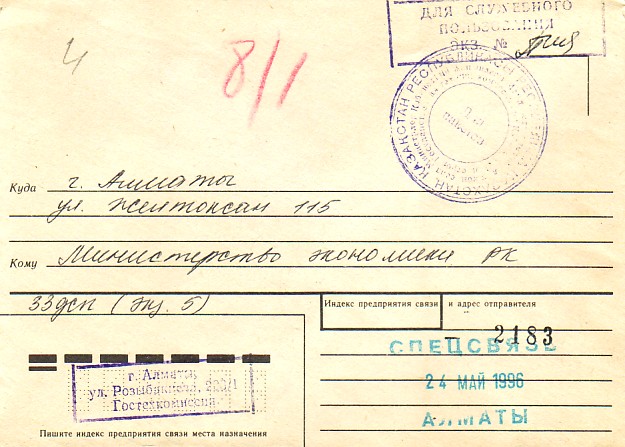 ДЛЯ СЛУЖЕБНОГО
ПОЛЬЗОВАНИЯ
ЭКЗ. №
Ч
8/1
КАЗАКСТАН РЕСПУБЛИКАСЫ
Для
пакетов
Куда г. Алматы
ул. Желтоксан 115
Кому Министерство экономики РК
33дсп (экз. 5)
Индекс предприятия связи и адрес отправителя
2183
СПЕЦСВЯЗЬ
24 МАЙ 1996
АЛМАТЫ
г. Алматы,
ул. Розыбакиева,
Гостехкомиссия
Пишите индекс предприятия связи места назначения